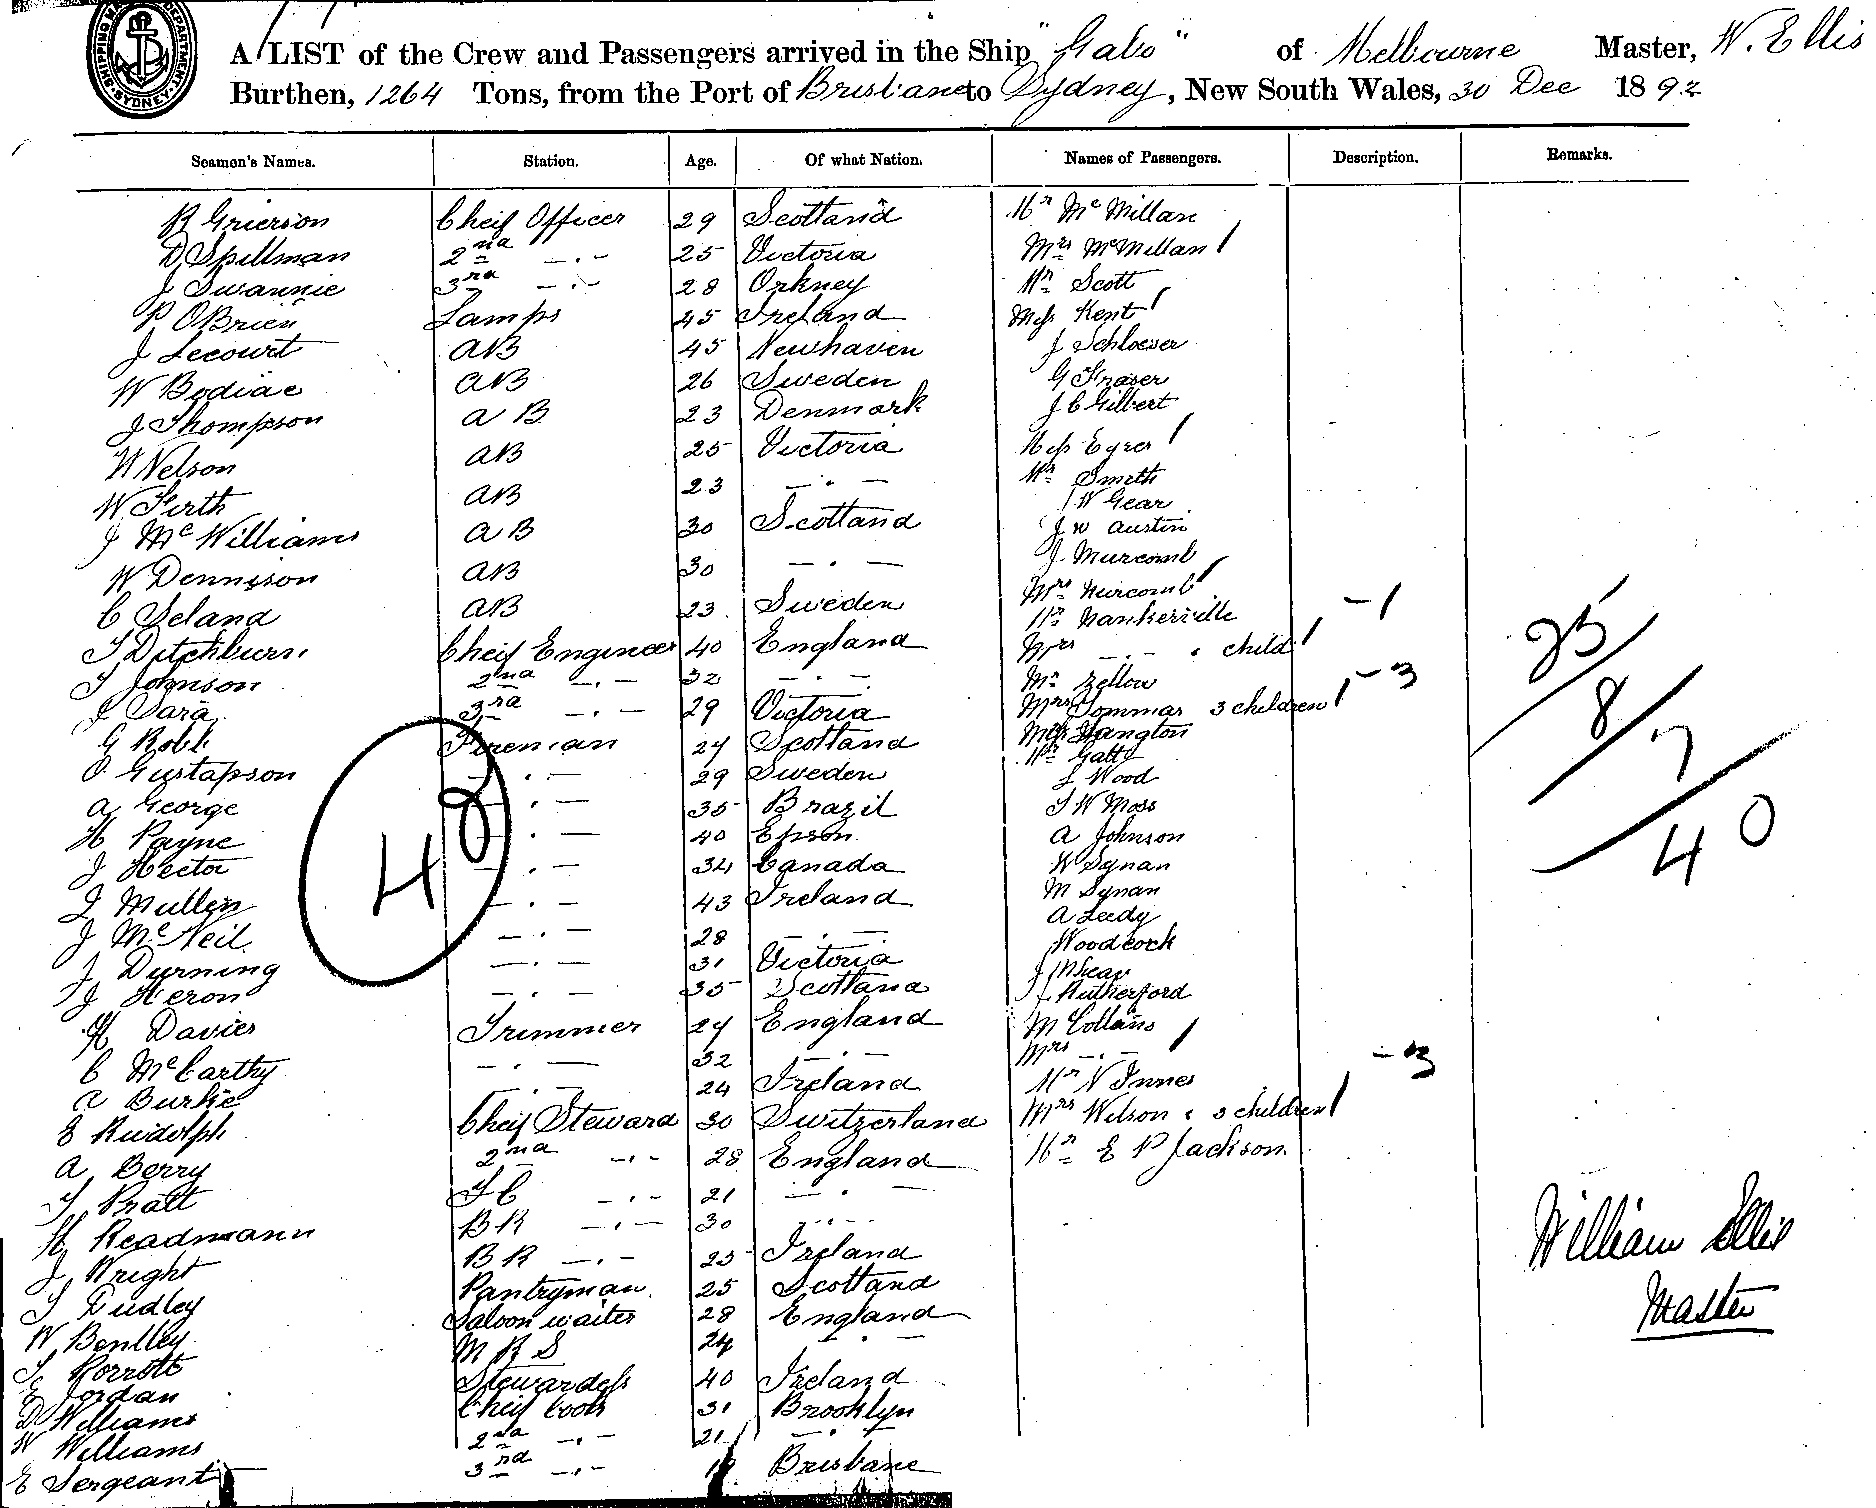 SHIPPING MASTER'S DEPARTMENT SYDNEY
A LIST of the Crew and Passengers arrived in the Ship "Gabo" of Melbourne Master, W. Ellis
Burthen, 1264 Tons, from the Port of Brisbane to Sydney, New South Wales, 30 Dec 1892
Seamen's Names. Station. Age. Of what Nation. Names of Passengers. Description. Remarks.
R Grierson Cheif Officer 29 Scotland Mr McMillan
D Spillman 2nd -.- 25 Victoria Mrs McMillan /
J Swannie 3rd -.- 28 Orkney Mr Scott
P OBrien Lamps 45 Ireland Miss Kent /
J Lecourt AB 45 Newhaven J Schloeser
W Bodiae AB 26 Sweden G Fraser
J Thompson a B 23 Denmark J C Gilbert
W Nelson AB 25 Victoria Miss Eyres /
W Firth AB 23 -.- Mr Smith
W Gear
J McWilliams a B 30 Scotland J W Austin
W Dennison AB 30 -.- J. Murcomb
C Seland AB 23 Sweden Mrs Murcomb /
Mr Nankerville
T Ditchburn Cheif Engineer 40 England Mrs -.- & child / -1
T Johnson 2nd -.- 32 -.- Mr Zellow
J Sara 3rd -.- 29 Victoria Mrs Tommas 3 children / -3
G Robb Fireman 24 Scotland Miss Hangton
Mr Gatty
O Gustafson -.- 29 Sweden L Wood
A George -.- 35 Brazil T W Moss
H Payne -.- 40 Epson A Johnson
J Hector -.- 34 Canada W Synan
J Mullen -.- 43 Ireland M Synan
A Leedy
J McNeil -.- 28 -.- Woodcock
J Durning -.- 31 Victoria J
J Heron -.- 35 Scotland J Rutherford
H Davies Trimmer 24 England M Collins
C McCarthy -.- 32 -.- Mrs -.- /
A Burke -.- 24 Ireland Mr N Innes
E Rudolph Cheif Steward 30 Switzerland Mrs Wilson & 3 children / -3
A Berry 2nd -.- 28 England Mr E P Jackson
T Pratt F C -.- 21 -.-
H Readmann B R -.- 30 -.-
J Wright B R -.- 23 Ireland
T Dudley Pantryman 25 Scotland
W Bentley Saloon waiter 28 England
T Porrott M R S 24 -.-
E Jordan Stewardess 40 Ireland
D Williams Cheif Cook 31 Brooklyn
W Williams 2nd -.- 21 -.-
E Sergeant 3rd -.- Brisbane
43
25
8
7
40
William Ellis
Master